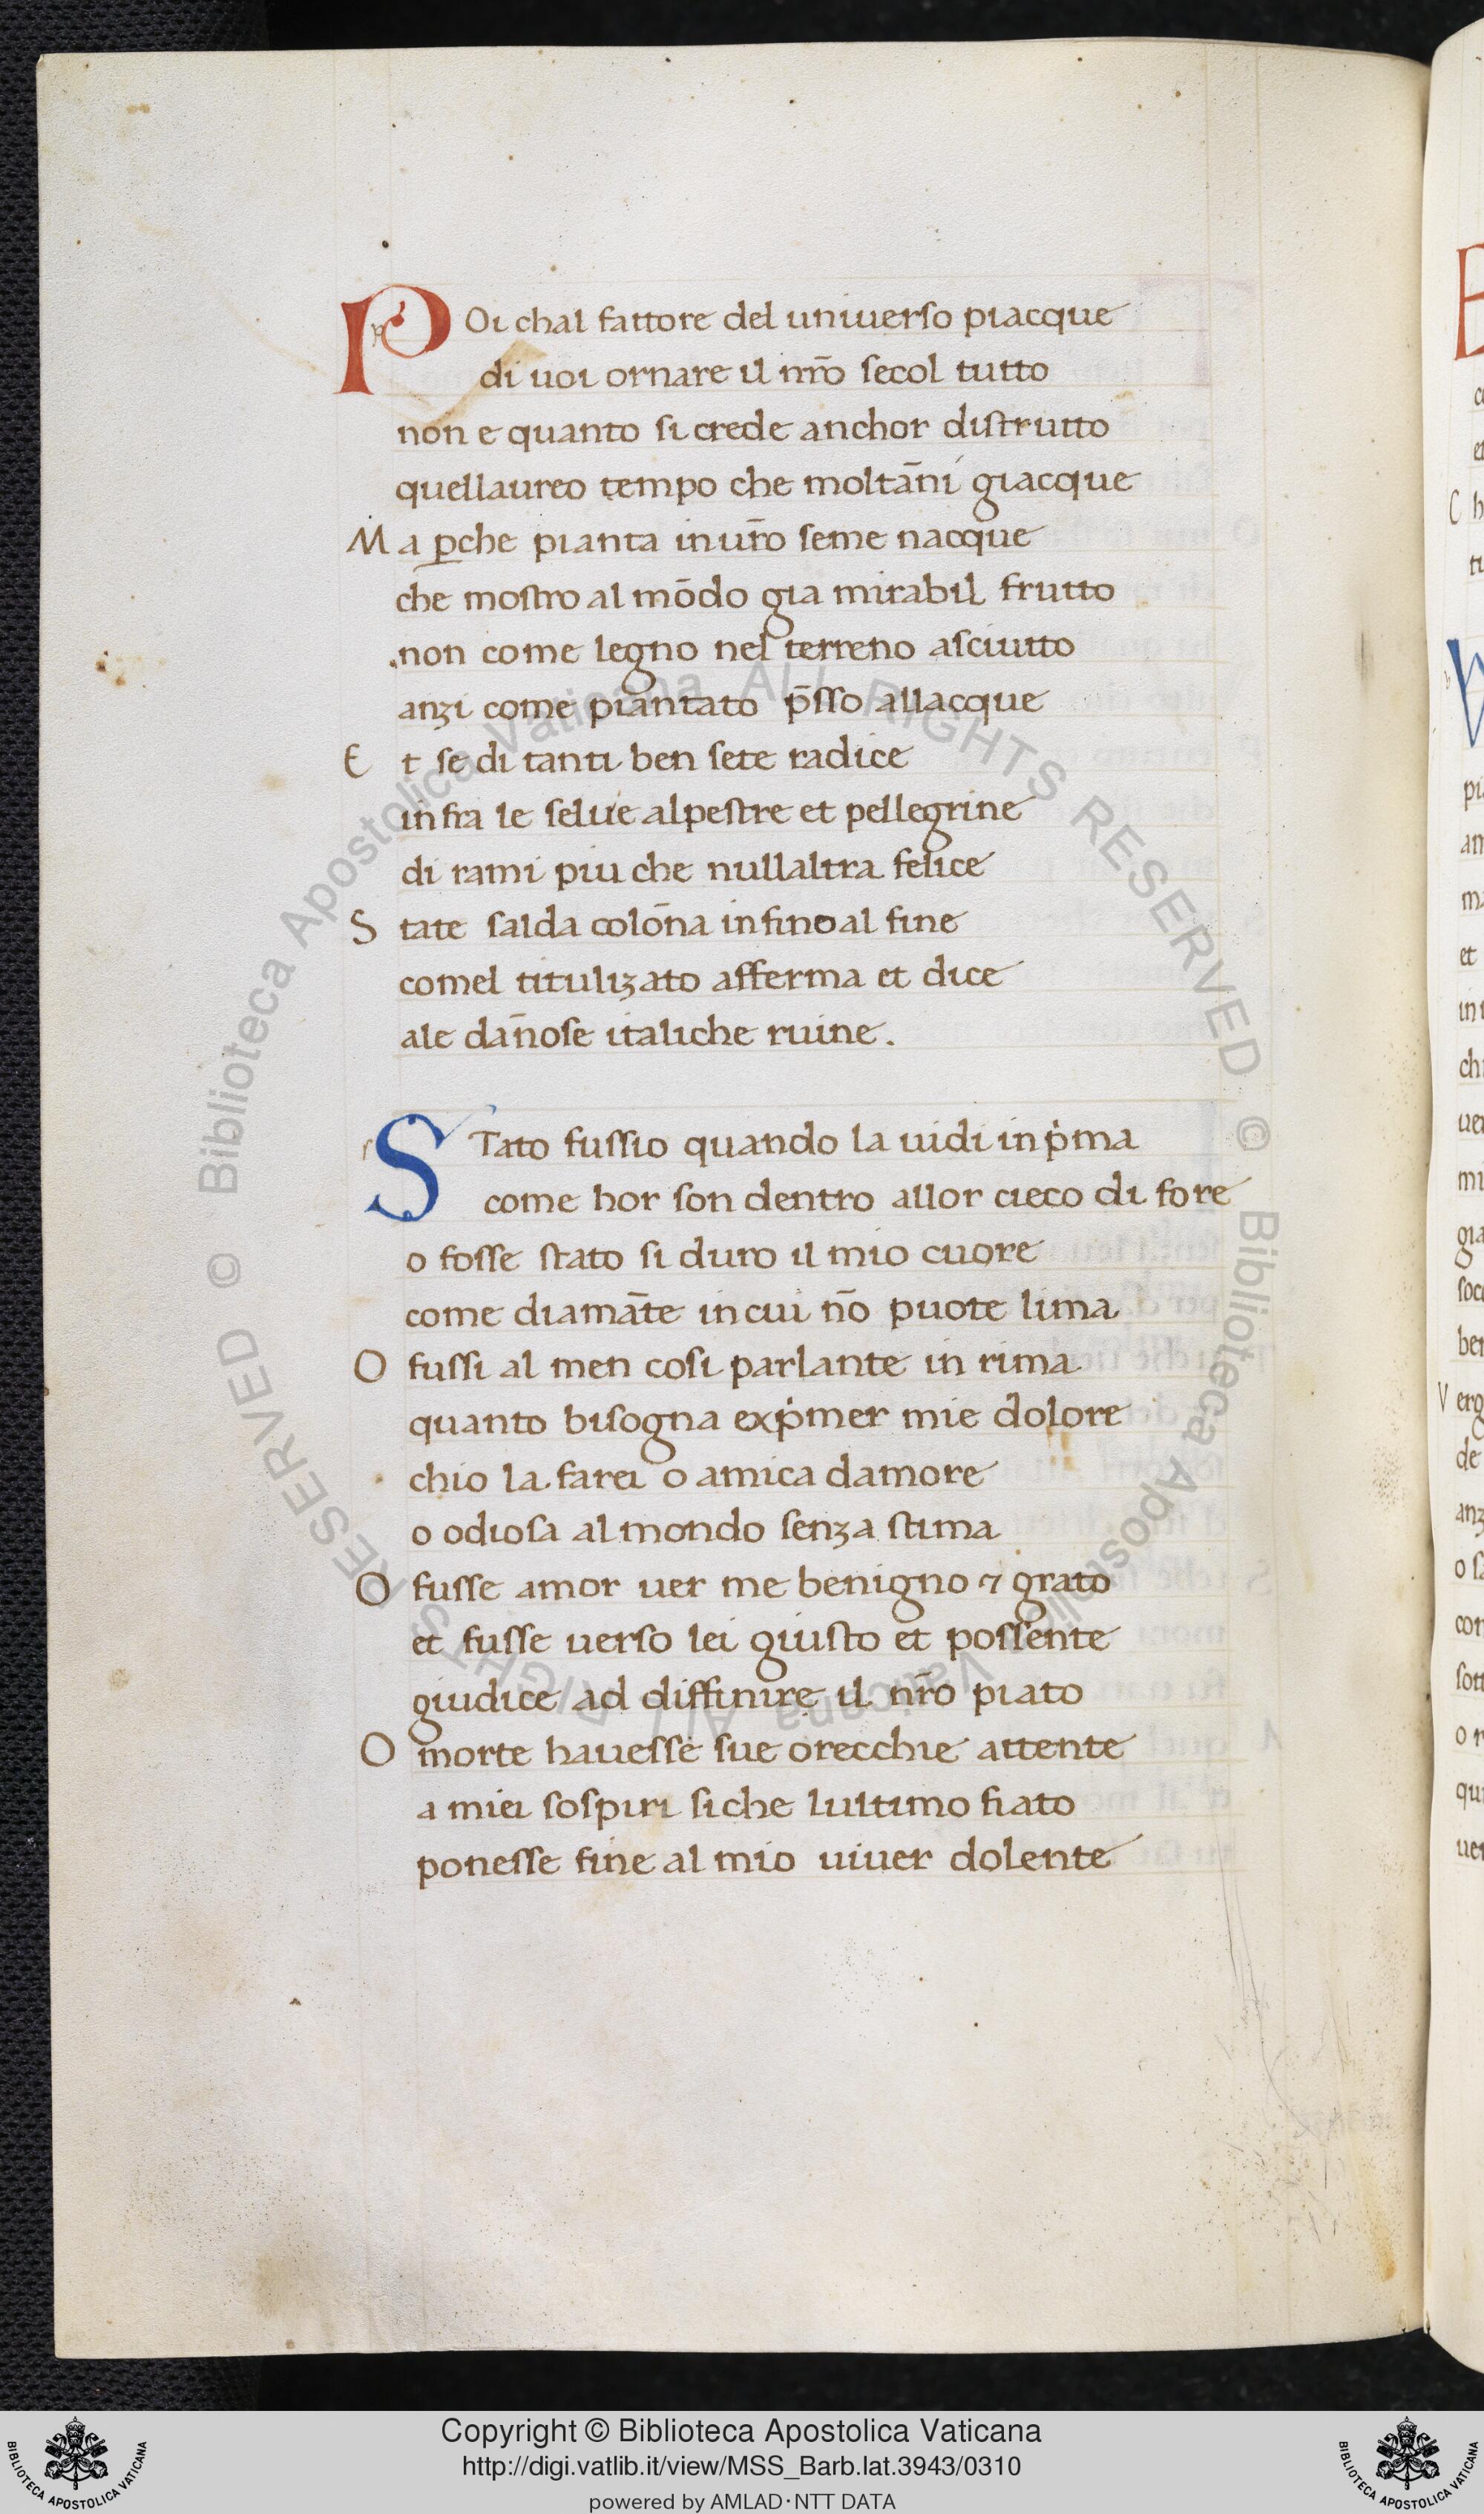 POi chal fattore del uniuerso piacque
di uoi ornare il nr̄o secol tutto
non e quanto si crede anchor distrutto
quellaureo tempo che moltan̄i giacque
Ma ꝑche pianta in ur̄o seme nacque
che mostro al mōdo gia mirabil frutto
non come legno nel terreno asciutto
anzi come piantato p̄sso allacque
Et se di tanti ben sete radice
in fra le selue alpestre et pellegrine
di rami piu che nullaltra felice
State salda colon̄a in fino al fine
comel titulizato afferma et dice
ale dan̄ose italiche ruine.
STato fussio quando la uidi in pͥma
come hor son dentro allor cieco di fore
o fosse stato si duro il mio cuore
come diamāte in cui nō puote lima
O fussi al men cosi parlante in rima
quanto bisogna expͥmer mie dolore
chio la farei o amica damore
o odiosa al mondo senza stima
O fusse amor uer me benigno ⁊ grato
et fusse uerso lei giusto et possente
giudice ad diffinire il nr̄o piato
O morte hauesse sue orecchie attente
a miei sospiri si che lultimo fiato
ponesse fine al mio uiuer dolente
© Biblioteca Apostolica Vaticana ALL RIGHTS RESERVED © Biblioteca Apostolica Vaticana ALL RIGHTS RESERVED
Copyright © Biblioteca Apostolica Vaticana
http://digi.vatlib.it/view/MSS_Barb.lat.3943/0310
powered by AMLAD·NTT DATA
BIBLIOTECA APOSTOLICA VATICANA
BIBLIOTECA APOSTOLICA VATICANA